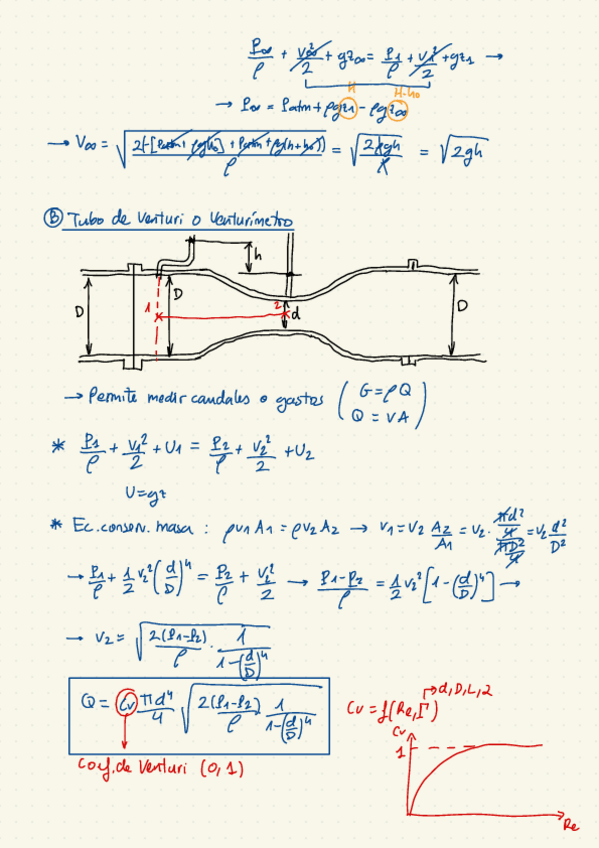 P∞/ρ + v∞²/2 + gz∞ = P1/ρ + v1²/2 + gz1 →
H H-h0
→ P∞ = Patm + ρgz1 - ρgz∞
→ V∞ = √(2(-[Patm + ρgh0] + Patm + ρg(h+h0))/ρ) = √(2ρgh/ρ) = √2gh
Ⓑ Tubo de Venturi o Venturímetro
h
D 1 D 2 d D
→ Permite medir caudales o gastos (G = ρQ
Q = VA)
* P1/ρ + v1²/2 + U1 = P2/ρ + v2²/2 + U2
U = gz
* Ec. conserv. masa : ρv1A1 = ρv2A2 → v1 = v2 A2/A1 = v2 · (πd²/4)/(πD²/4) = v2 d²/D²
→ P1/ρ + 1/2 v2² (d/D)⁴ = P2/ρ + v2²/2 → P1-P2/ρ = 1/2 v2² [1-(d/D)⁴] →
→ v2 = √(2(P1-P2)/ρ · 1/(1-(d/D)⁴))
Q = Cv πd⁴/4 √(2(P1-P2)/ρ 1/(1-(d/D)⁴))
Coef. de Venturi (0,1)
d, D, L, 2
Cv = f(Re, Γ)
Cv
1
Re